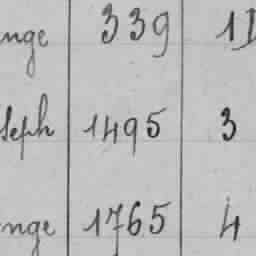 nge 339 11
seph 1495 3
nge 1765 4